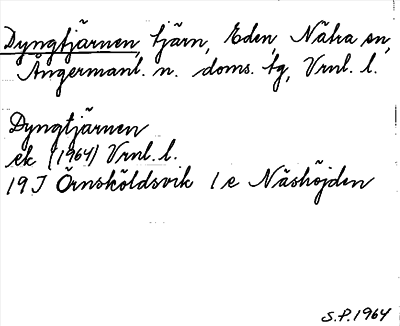 Dyngtjärnen, tjärn, Eden, Nätra sn,
Ångermanl. n. doms. tg, Vrnl. l.
Dyngtjärnen
ek (1964) Vrnl. l.
19 J Örnsköldsvik 1 e Näshöjden
S.P. 1964